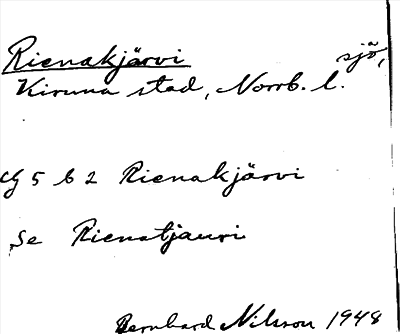 Rienakjärvi sjö,
Kiruna stad, Norrb. l.
G 5 b 2 Rienakjärvi
Se Rienatjauri
Bernhard Nilsson 1948